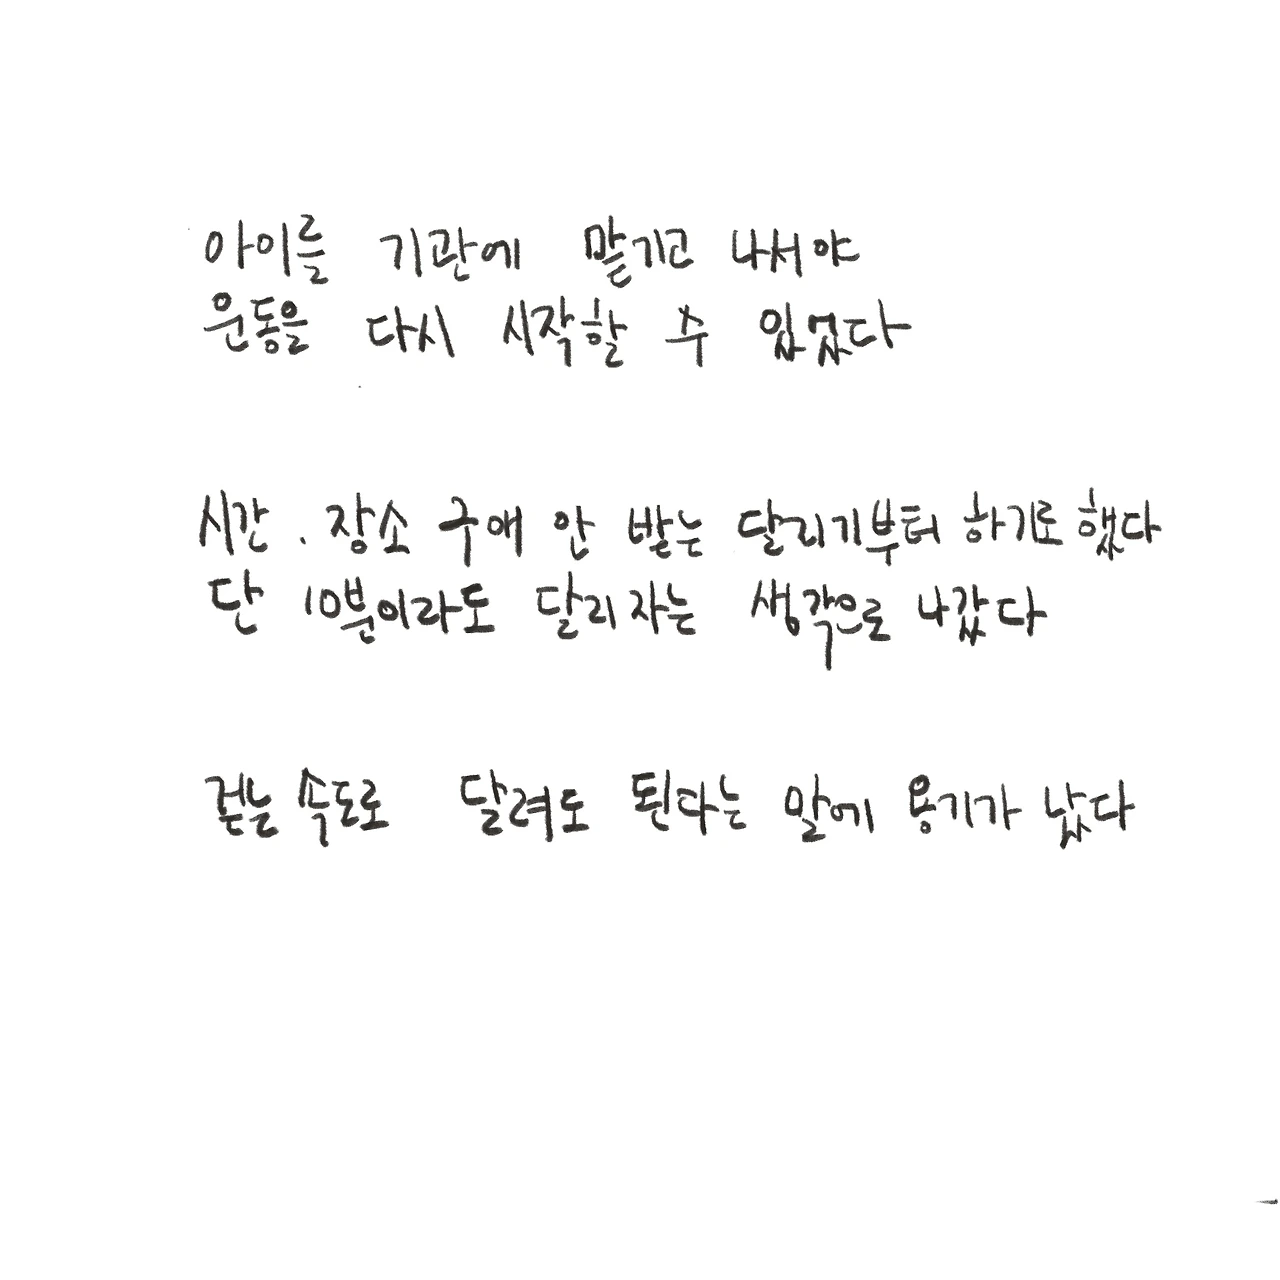 아이를 기관에 맡기고 나서야
운동을 다시 시작할 수 있었다
시간. 장소 구애 안 받는 달리기부터 하기로 했다
단 10분이라도 달리자는 생각으로 나갔다
걷는 속도로 달려도 된다는 말에 용기가 났다